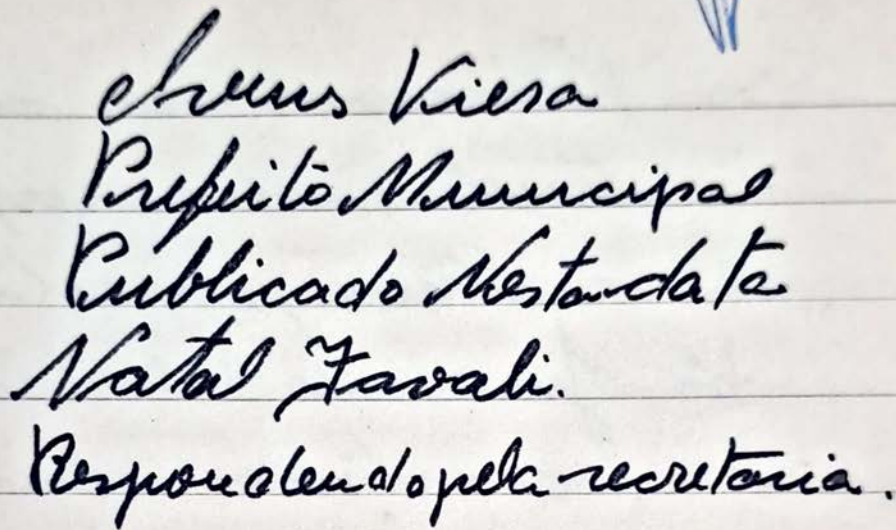 Vieira
Prefeito Municipal
Publicado Nesta data
Natal Favali.
Respondendo pela secretaria.